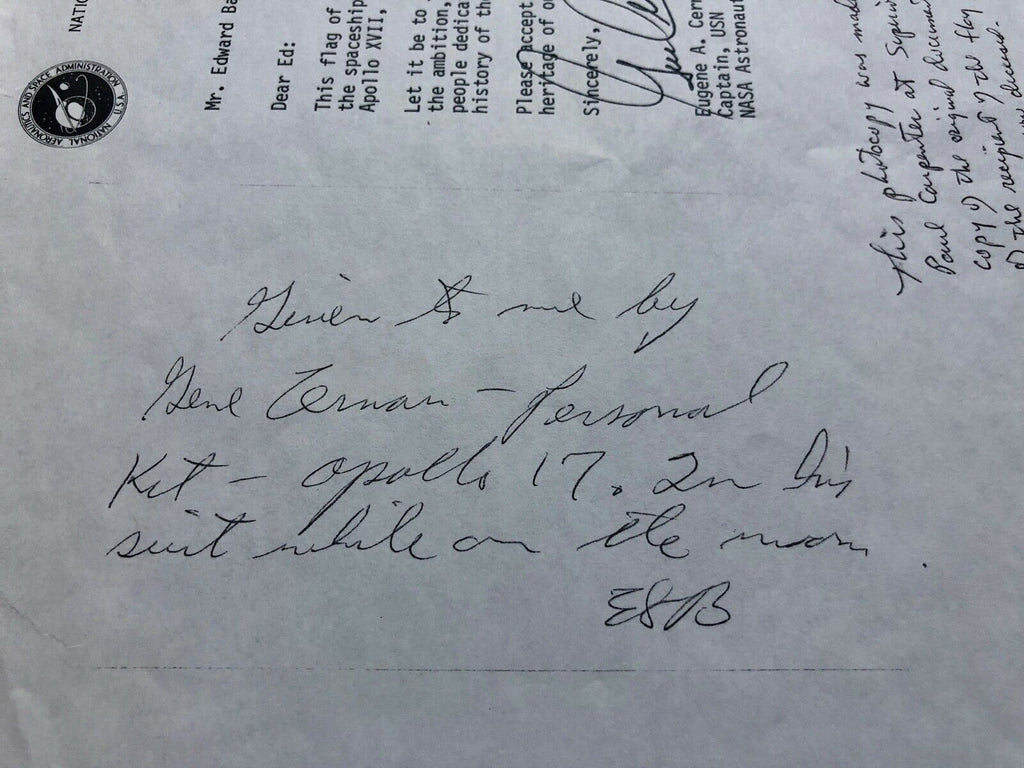 NATIONAL AERONAUTICS AND SPACE ADMINISTRATION U.S.A.
Mr. Edward
Dear Ed:
This flag of
the spaceship
Apollo XVII,
Let it be to
the ambition,
people
history of the
Please accept
heritage of
Sincerely,
Eugene A.
Captain, USN
NASA
This photocopy was
Paul Carpenter at
copy of the original
of the recipient of the flag
Given to me by
Gene Cernan – Personal
Kit – Apollo 17. In his
suit while on the moon.
ESB